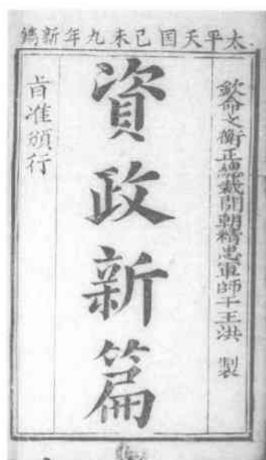 太平天囯己未九年新鐫
欽命文衡正總裁開朝精忠軍師干王洪 製
資政新篇
旨准頒行